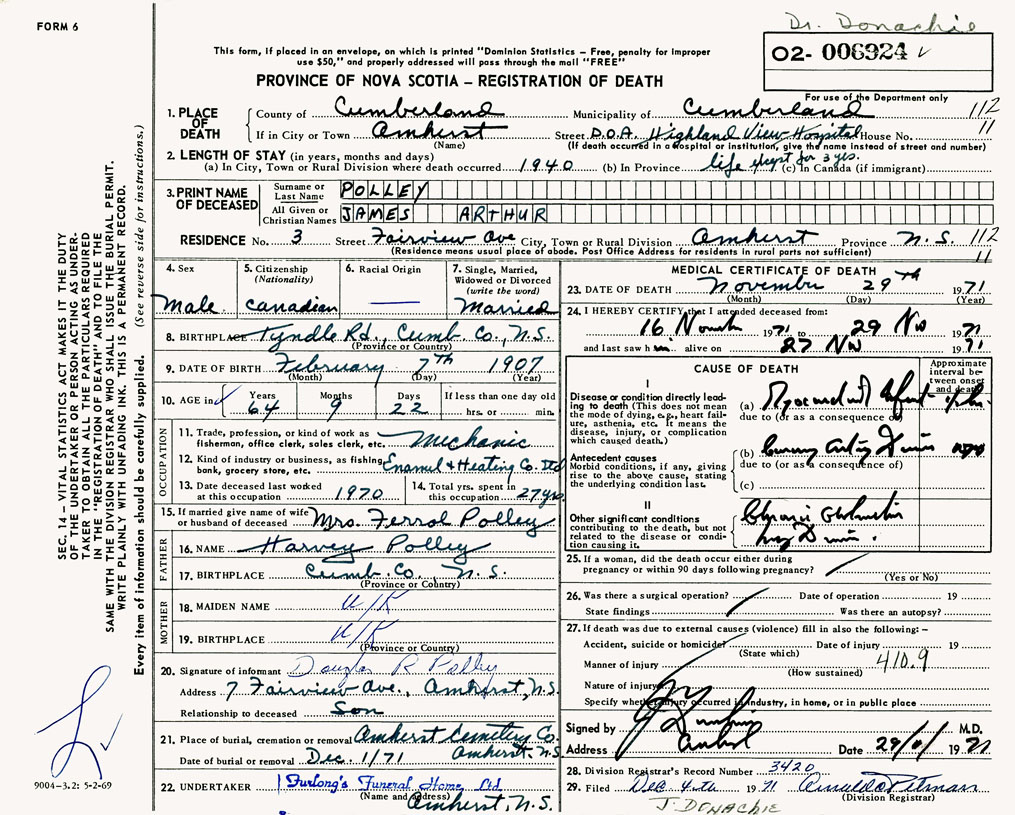 FORM 6
Dr. Donachie
O2- 006924
This form, if placed in an envelope, on which is printed "Dominion Statistics – Free, penalty for improper
use $50," and properly addressed will pass through the mail "FREE"
PROVINCE OF NOVA SCOTIA – REGISTRATION OF DEATH
For use of the Department only
1. PLACE OF DEATH County of Cumberland Municipality of Cumberland 112
If in City or Town Amherst Street D.O.A. Highland View Hospital House No. 11
(Name) (If death occurred in a hospital or institution, give the name instead of street and number)
2. LENGTH OF STAY (in years, months and days)
(a) In City, Town or Rural Division where death occurred 1940 (b) In Province life except for 3 yrs. (c) In Canada (if immigrant)
3. PRINT NAME OF DECEASED Surname or Last Name POLLEY
All Given or Christian Names JAMES ARTHUR
RESIDENCE No. 3 Street Fairview Ave City, Town or Rural Division Amherst Province N.S. 112
(Residence means usual place of abode. Post Office Address for residents in rural parts not sufficient) 11
4. Sex Male
5. Citizenship (Nationality) Canadian
6. Racial Origin —
7. Single, Married, Widowed or Divorced (write the word) Married
8. BIRTHPLACE Tyndle Rd., Cumb. Co., N.S.
(Province or Country)
9. DATE OF BIRTH February 7th 1907
(Month) (Day) (Year)
10. AGE in Years 64 Months 9 Days 22 If less than one day old hrs. or min.
OCCUPATION
11. Trade, profession, or kind of work as
fisherman, office clerk, sales clerk, etc. Mechanic
12. Kind of industry or business, as fishing,
bank, grocery store, etc. Enamel & Heating Co. Ltd
13. Date deceased last worked
at this occupation 1970
14. Total yrs. spent in
this occupation 27 yrs.
15. If married give name of wife
or husband of deceased Mrs. Ferrol Polley
FATHER
16. NAME Harvey Polley
17. BIRTHPLACE Cumb. Co., N.S.
(Province or Country)
MOTHER
18. MAIDEN NAME U/K
19. BIRTHPLACE U/K
(Province or Country)
20. Signature of informant Douglas R Polley
Address 7 Fairview Ave., Amherst, N.S.
Relationship to deceased Son
21. Place of burial, cremation or removal Amherst Cemetery Co.
Amherst. N.S.
Date of burial or removal Dec. 1/71
22. UNDERTAKER Furlong's Funeral Home Ltd.
(Name and address) Amherst, N.S.
MEDICAL CERTIFICATE OF DEATH
23. DATE OF DEATH November 29th 1971
(Month) (Day) (Year)
24. I HEREBY CERTIFY that I attended deceased from:
16 1971 to 29 Nov 1971
and last saw him alive on 27 Nov 1971
CAUSE OF DEATH
Approximate interval between onset and death
I
Disease or condition directly leading to death (This does not
mean the mode of dying, e.g., heart failure,
asthenia, etc. It means the
disease, injury, or complication
which caused death.)
(a)
due to (or as a consequence of)
Antecedent causes
Morbid conditions, if any, giving
rise to the above cause, stating
the underlying condition last.
(b)
due to (or as a consequence of)
(c)
II
Other significant conditions
contributing to the death, but not
related to the disease or condition
causing it.
25. If a woman, did the death occur either during
pregnancy or within 90 days following pregnancy?
(Yes or No)
26. Was there a surgical operation? Date of operation 19
State findings Was there an autopsy?
27. If death was due to external causes (violence) fill in also the following: –
Accident, suicide or homicide Date of injury 19
(State which)
Manner of injury 410.9
(How sustained)
Nature of injury
Specify whether injury occurred in industry, in home, or in public place
Signed by M.D.
Address Date 29/11/1971
28. Division Registrar's Record Number 3420
29. Filed Dec 4th 1971
(Division Registrar)
J. DONACHIE
SEC. 14 – VITAL STATISTICS ACT MAKES IT THE DUTY
OF THE UNDERTAKER OR PERSON ACTING AS UNDER-
TAKER TO OBTAIN ALL THE PARTICULARS REQUIRED
IN THE "REGISTRATION OF DEATH" AND TO FILE THE
SAME WITH THE DIVISION REGISTRAR WHO SHALL ISSUE THE BURIAL PERMIT.
WRITE PLAINLY WITH UNFADING INK. THIS IS A PERMANENT RECORD.
Every item of information should be carefully supplied. (See reverse side for instructions.)
9004-3.2: 5-2-69